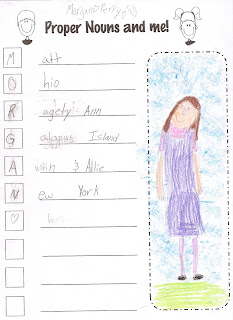 Morgan Perry
Proper Nouns and me!
M att
O hio
R agety Ann
G Island
A ustin & Allie
N ew York